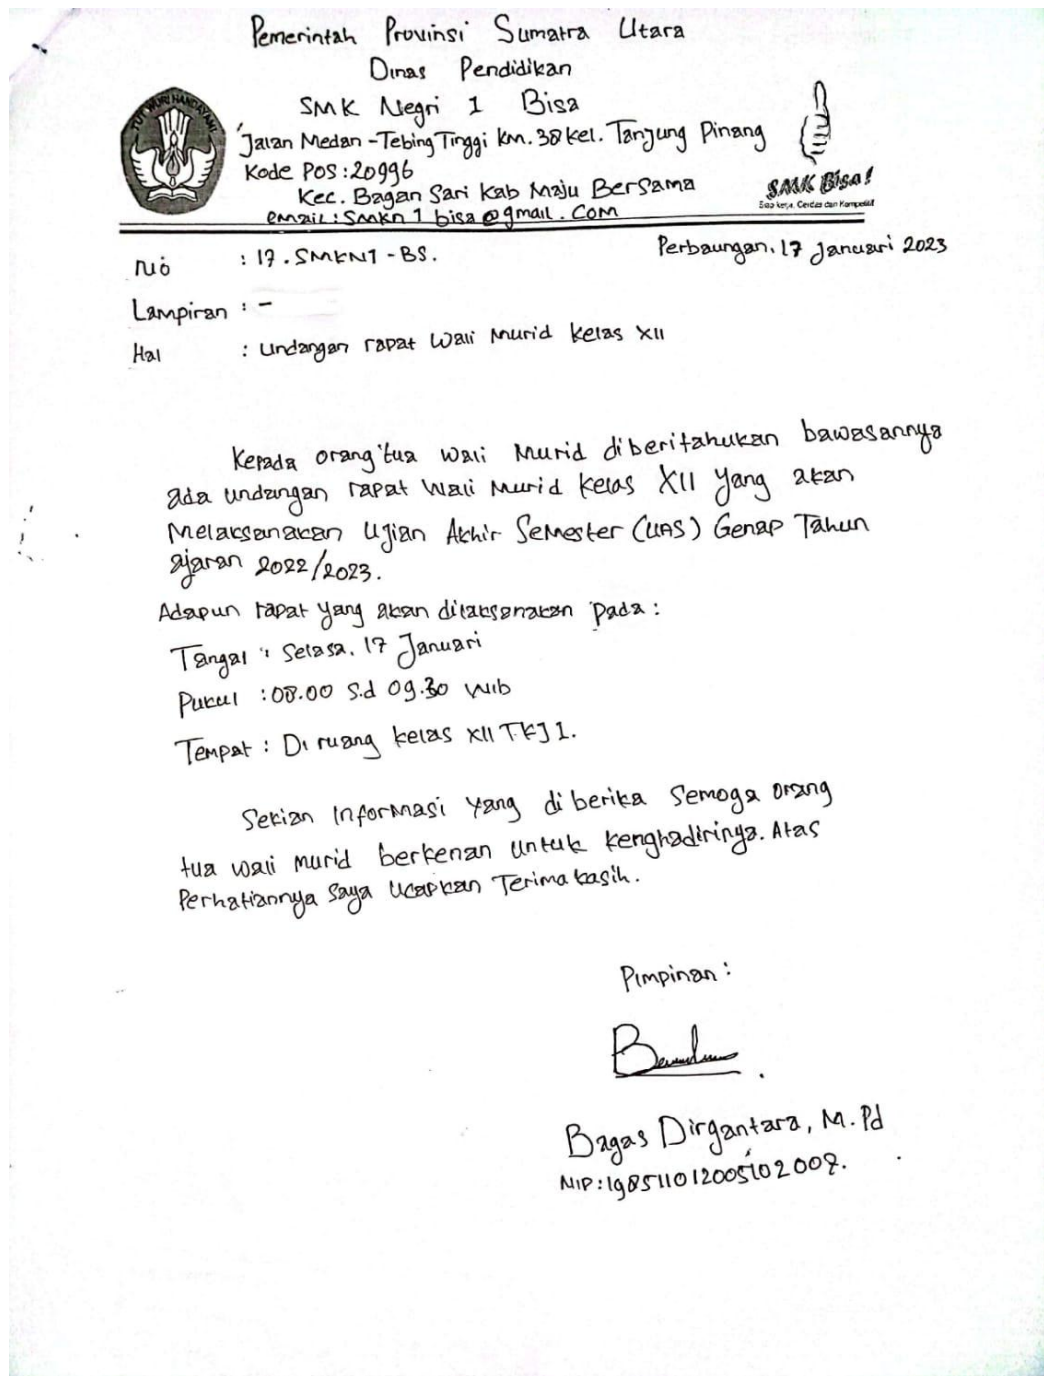 Pemerintah Provinsi Sumatra Utara
Dinas Pendidikan
SMK Negri 1 Bisa
Jalan Medan - Tebing Tinggi km. 38 kel. Tanjung Pinang
Kode Pos : 20996
Kec. Bagan Sari Kab Maju Bersama
email : Smkn 1 bisa @gmail . Com
TUT WURI HANDAYANI
SMK Bisa!
Siap kerja, Cerdas dan Kompetitif
Perbaungan, 17 Januari 2023
No : 17 . SMKN1 - BS.
Lampiran : -
Hal : Undangan rapat Wali Murid Kelas XII
Kepada orang tua wali Murid diberitahukan bawasannya
ada undangan rapat Wali Murid Kelas XII yang akan
Melaksanakan Ujian Akhir Semester (UAS) Genap Tahun
ajaran 2022/2023.
Adapun rapat yang akan dilaksanakan pada :
Tangal : Selasa, 17 Januari
Pukul : 08.00 S.d 09.30 Wib
Tempat : Di ruang kelas XII TKJ 1.
Sekian Informasi Yang di berika Semoga orang
tua wali murid berkenan untuk kenghadirinya. Atas
Perhatiannya Saya Ucapkan Terima kasih.
Pimpinan :
Bagas Dirgantara, M. Pd